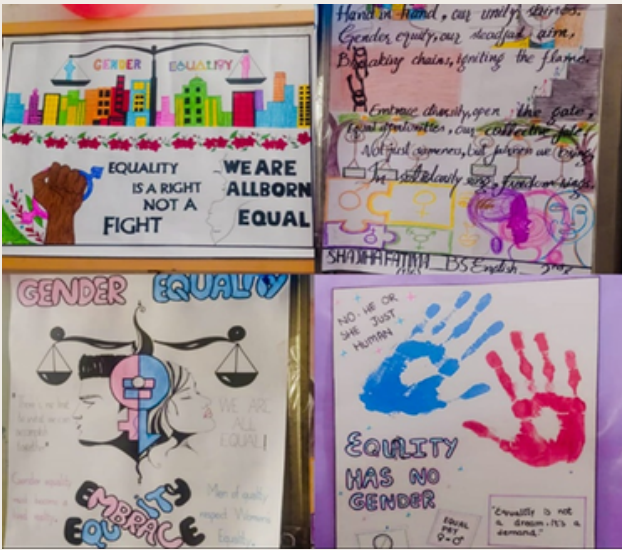 GENDER EQUALITY
EQUALITY
IS A RIGHT
NOT A
FIGHT
WE ARE
ALL BORN
EQUAL
Hand in hand, our unity shines.
Gender equity, our steadfast aim,
Breaking chains, igniting the flame.
Embrace diversity, open the gate,
Equal opportunities, our collective fate!
Not just sameness, but fairness we bring
In solidarity sing, freedom rings.
FATIMA BS English 2nd
GENDER EQUALITY
WE ARE
ALL
EQUAL!
Gender equality
Men of quality
respect Women's
Equality.
EMBRACE
EQUITY
NO HE OR
SHE JUST
HUMAN
EQUALITY
HAS NO
GENDER
EQUAL
PAY
♀=♂
"Equality is not
a dream. It's a
demand."